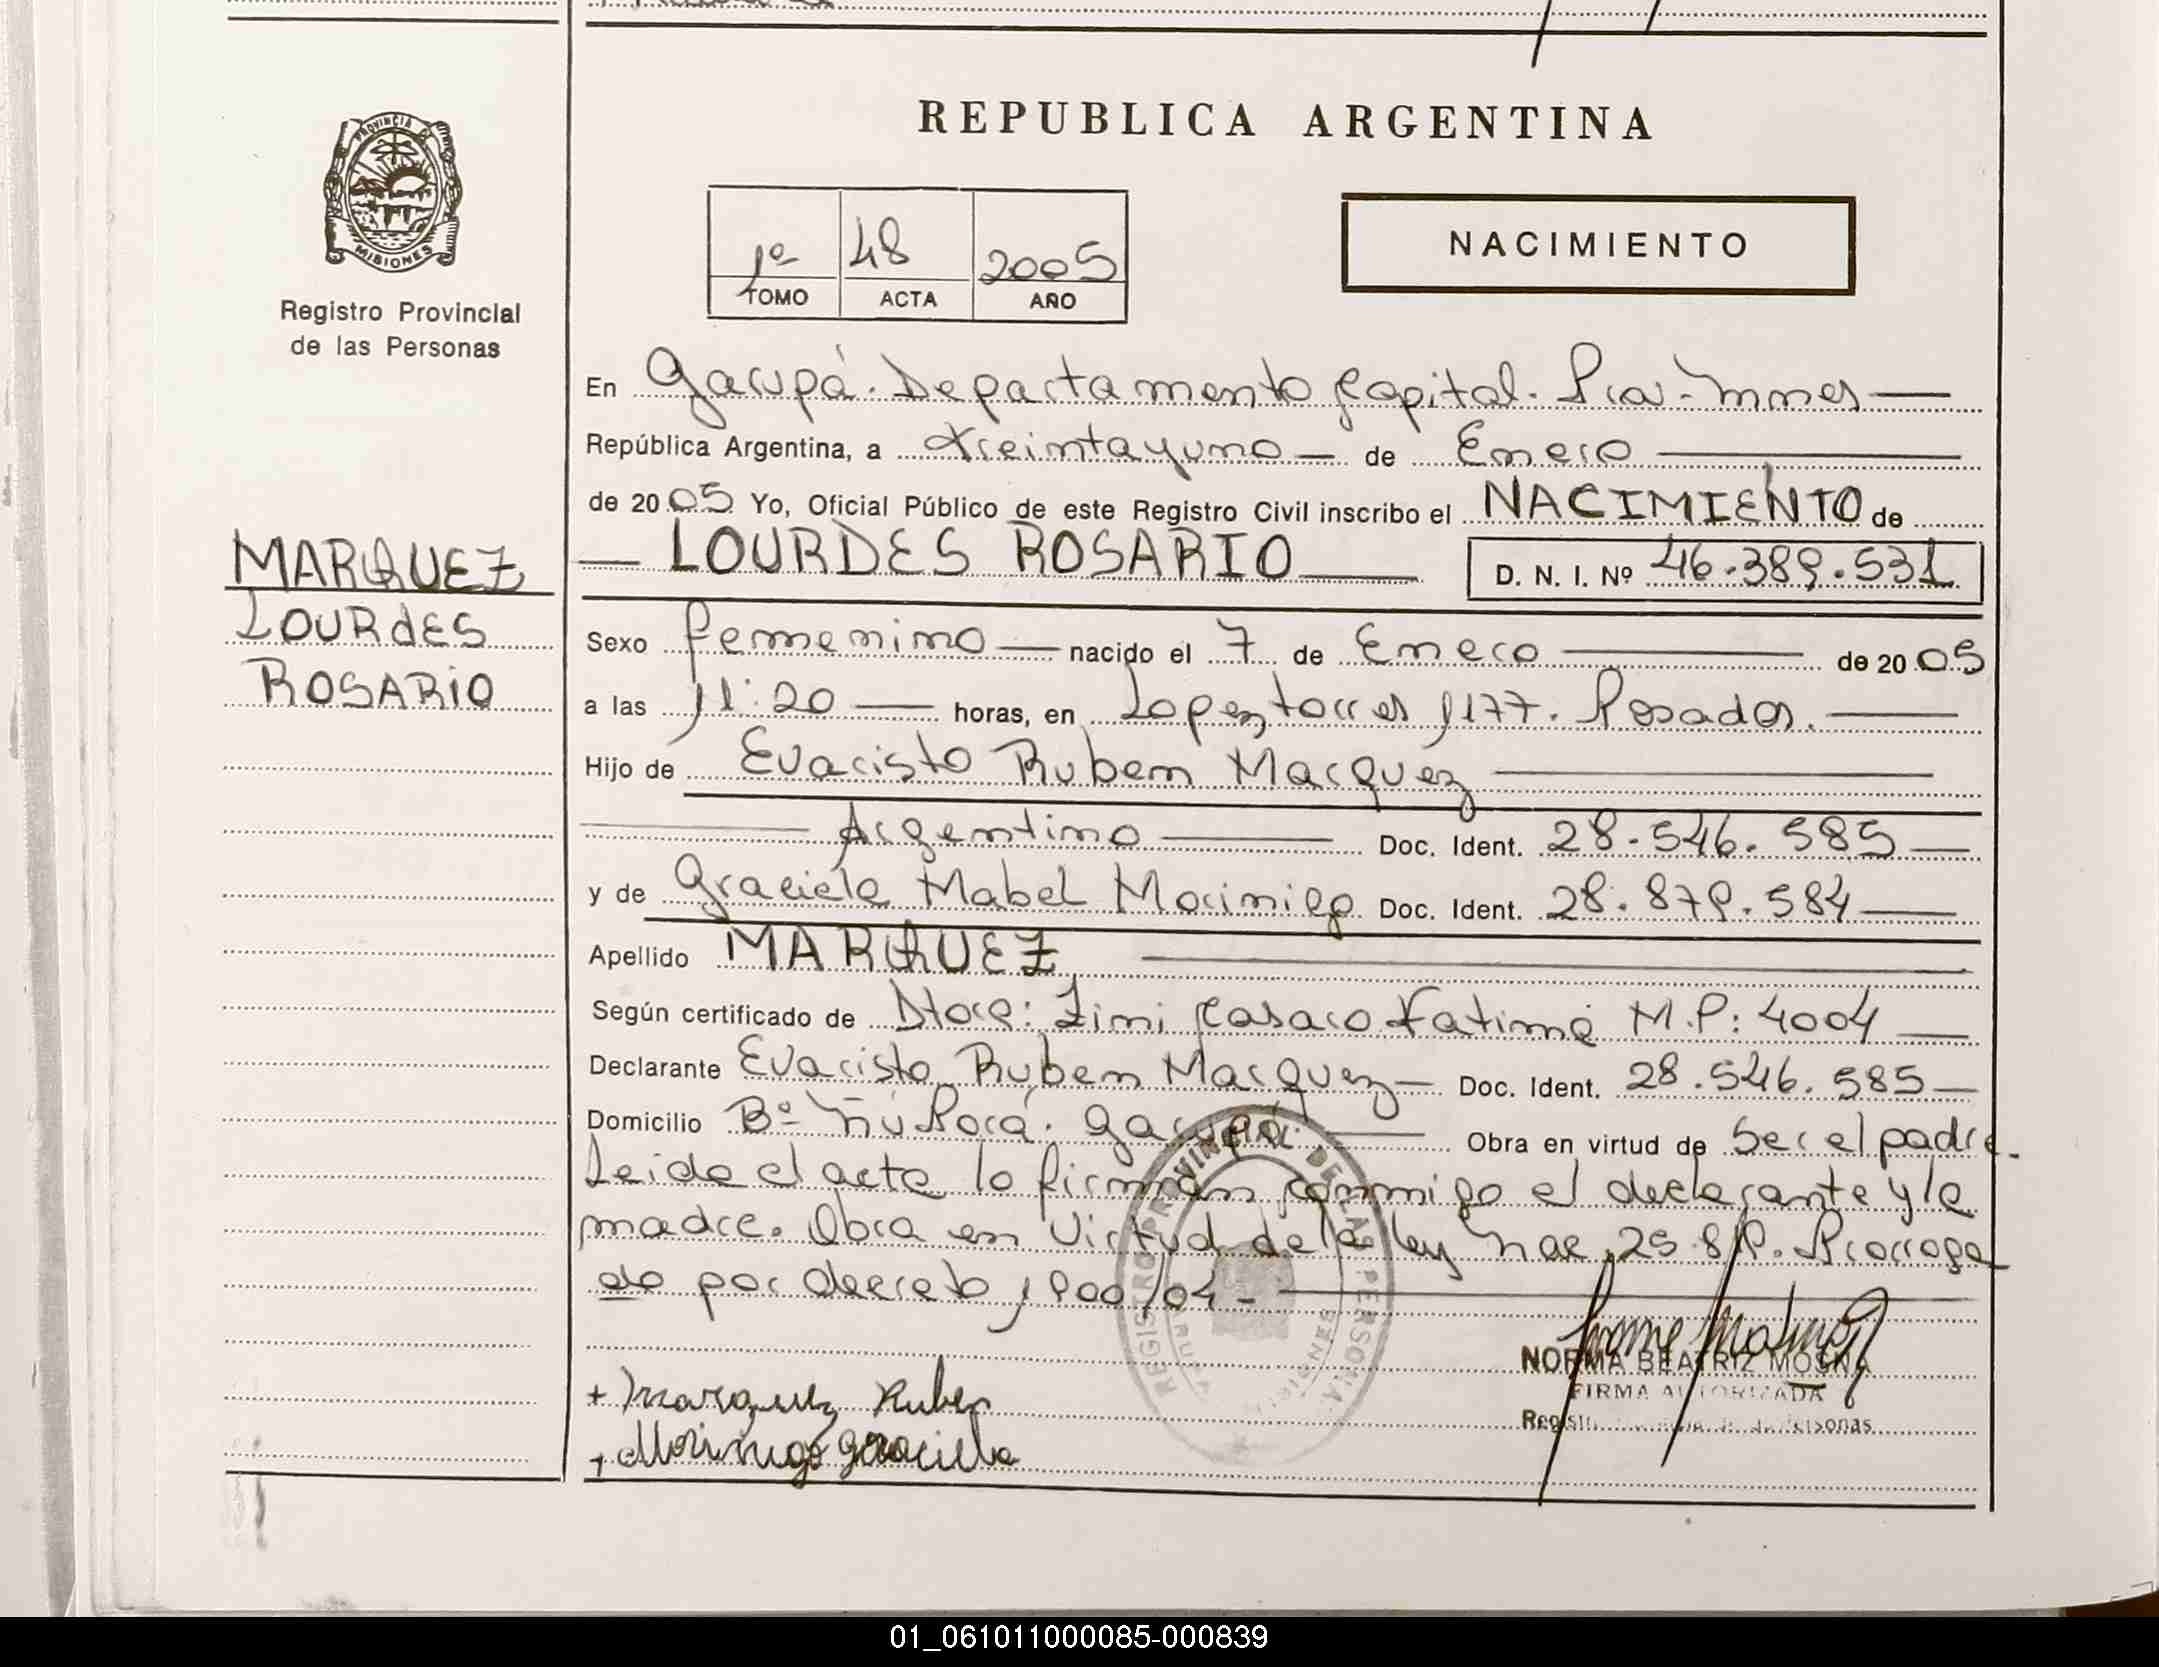 REPUBLICA ARGENTINA
PROVINCIA DE
MISIONES
Registro Provincial
de las Personas
1º 48 2005
TOMO ACTA AÑO
NACIMIENTO
En Garupá. Departamento Capital. Pcia. Mnes
República Argentina, a treintayuno de Enero
de 2005 Yo, Oficial Público de este Registro Civil inscribo el NACIMIENTO de
LOURDES ROSARIO D. N. I. Nº 46.389.531
MARQUEZ
LOURdES
ROSARIO
Sexo femenino nacido el 7 de Enero de 2005
a las 11:20 horas, en Lopez torres 1177. Posadas.
Hijo de Evaristo Ruben Marquez
Argentino Doc. Ident. 28.546.585
y de Graciela Mabel Morinigo Doc. Ident. 28.879.584
Apellido MARQUEZ
Según certificado de Dtora: Zimi Casaro Fatima M.P: 4004
Declarante Evaristo Ruben Marquez Doc. Ident. 28.546.585
Domicilio Bº Ñu Porá. Garupá. Obra en virtud de Ser el padre.
Leida el acta lo firman conmigo el declarante y la
madre. Obra en Virtud de la ley nac. 25.819. Prorroga
do por decreto 1900/04-
REGISTRO PROVINCIAL DE LAS PERSONAS
NORMA BEATRIZ MOSNA
FIRMA AUTORIZADA
+ Marquez Ruben
+ Morinigo Graciela
01_061011000085-000839